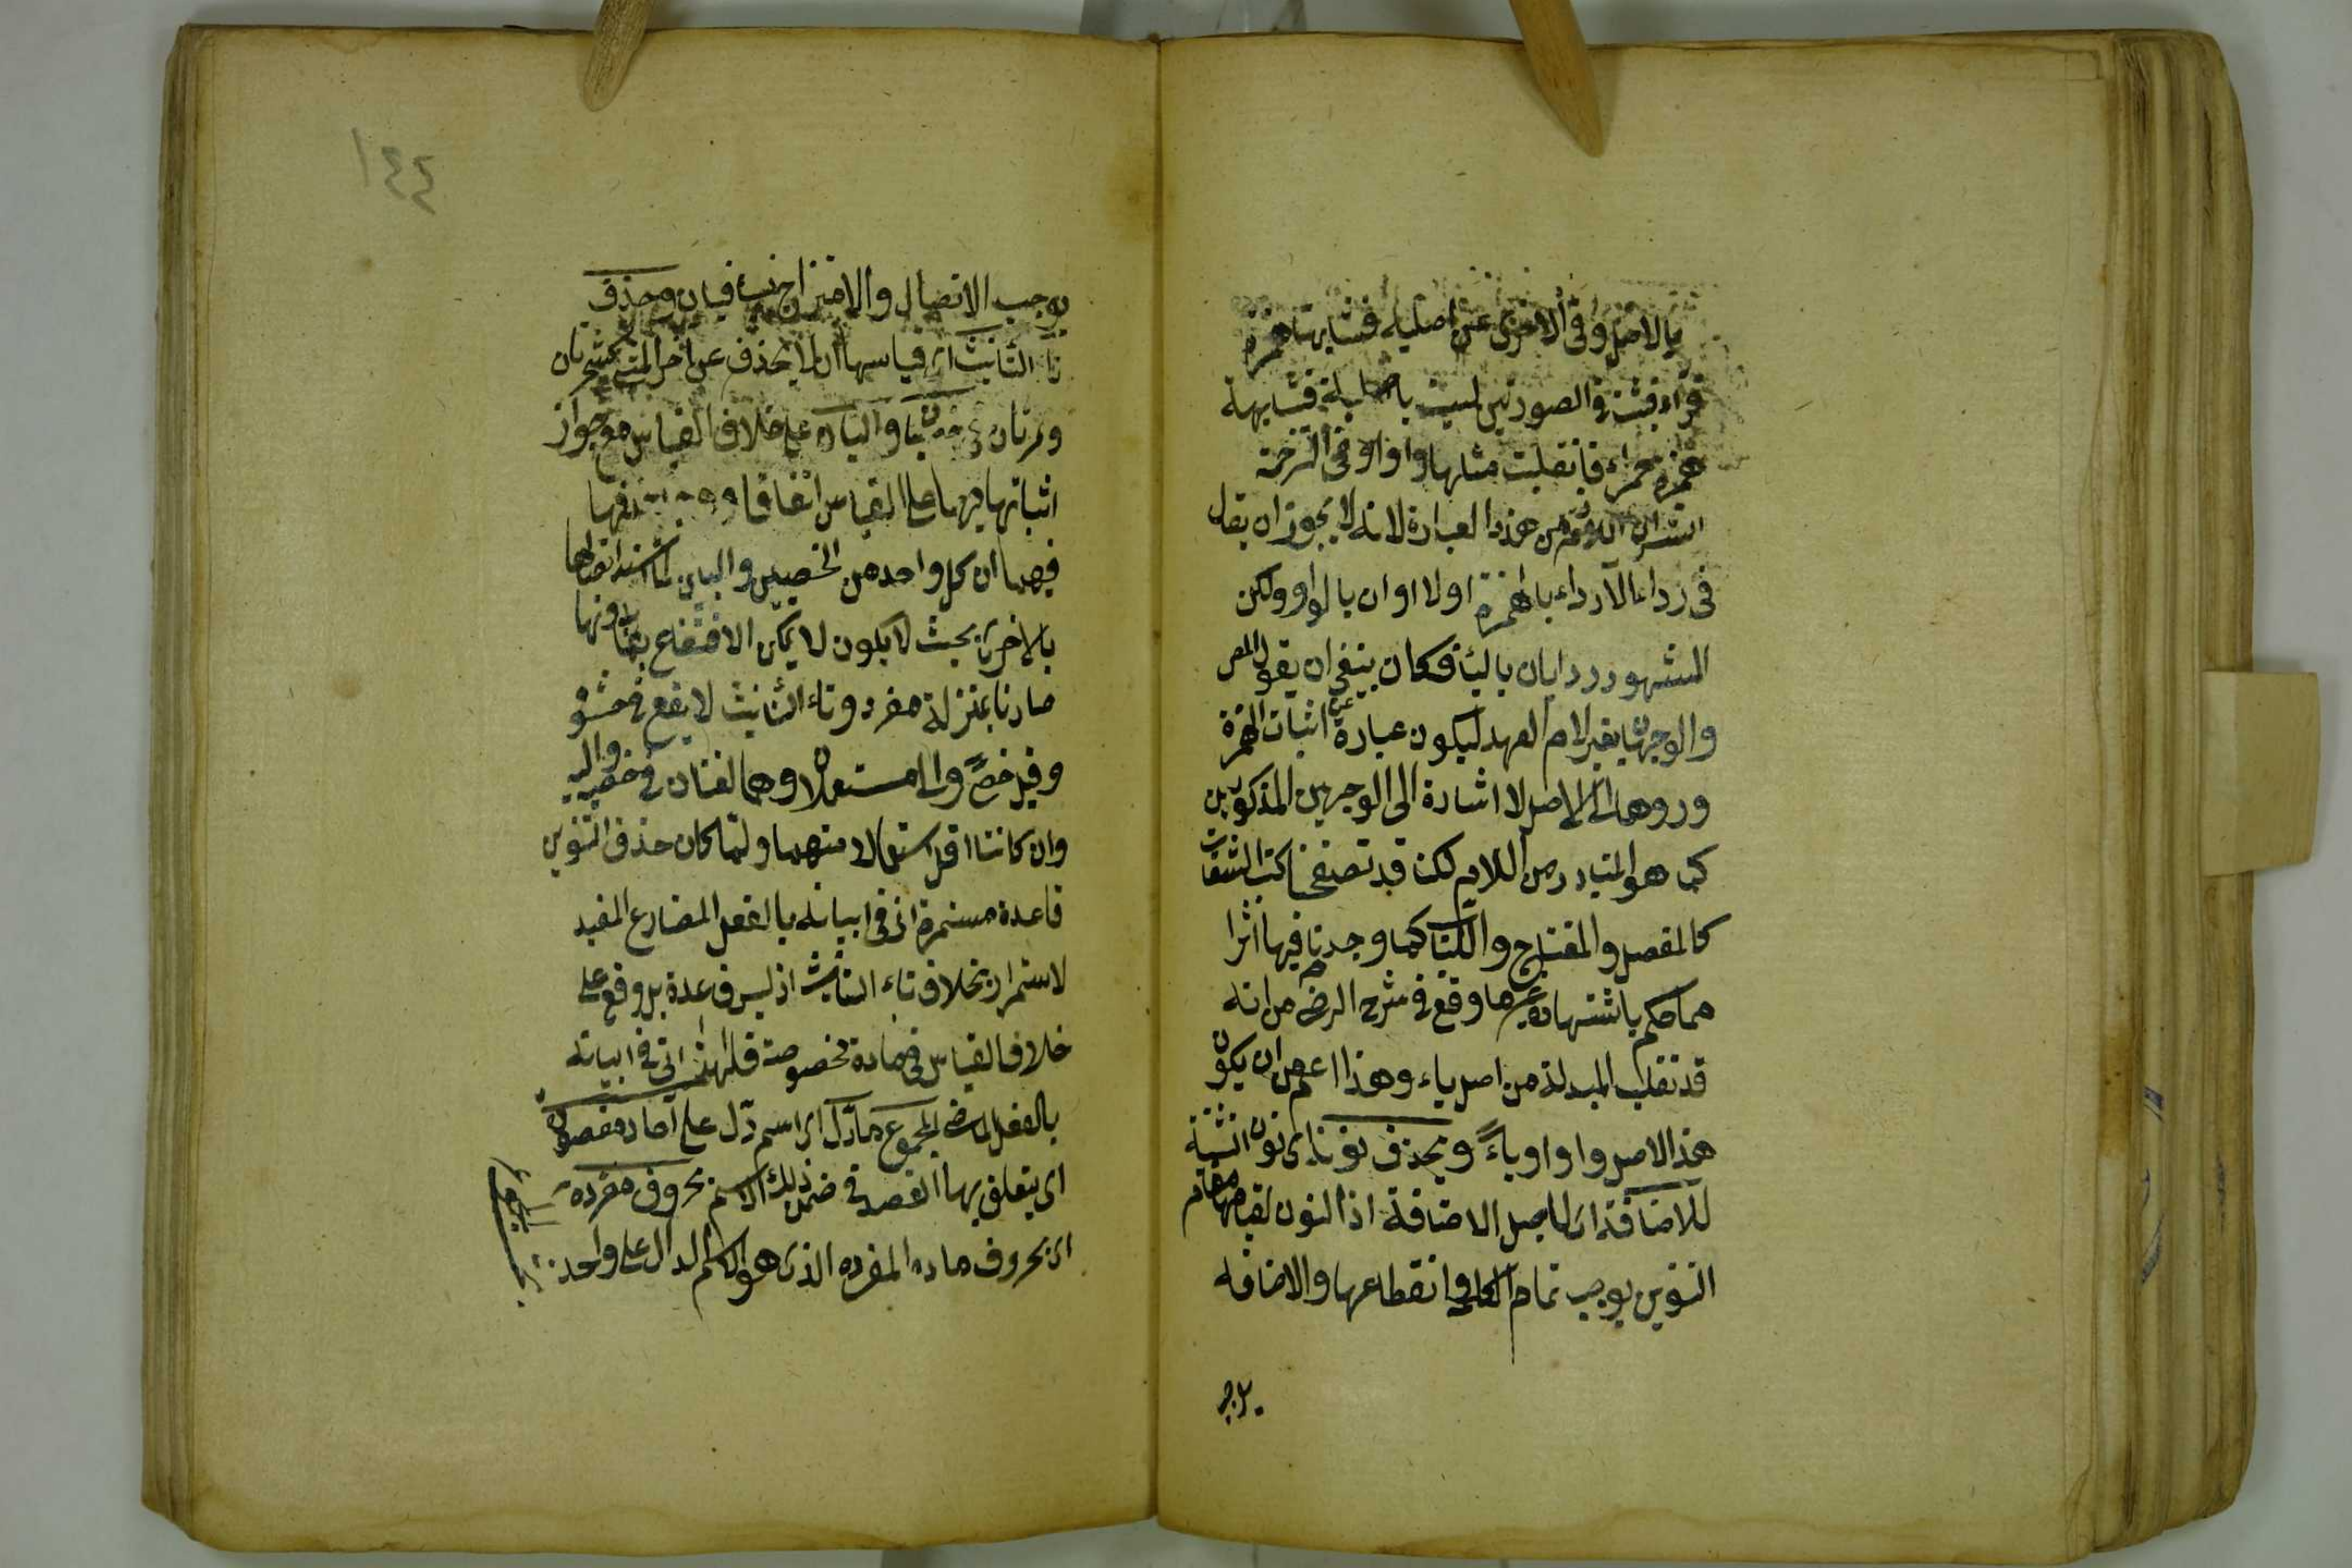 بالاصل وفى الاخرى عن اصلية فشابهتا همزة
قراء فثبتت فى الصورتين ليست باصلية فشابهة
همزة حمراء فانقلبت مثلها واوا وفى الترجمة
الشرا من هذه العبارة لانه لا يجوز ان يقال
فى رداء الا رداء بالهمزة اولا اوان بالواو ولكن
المشهور ردايان بالياء فكان ينبغى ان يقول المص
والوجهان بغير لام العهد ليكون عبارة عن اثبات الهمزة
وردها الى الاصل لا اشارة الى الوجهين المذكورين
كما هو المتبادر من اللام لكنا قد تصفحنا كتب الثقات
كالمفصل والمفتاح واللباب فما وجدنا فيها اثرا
مما حكم باشتهاره غير ما وقع فى شرح الرضى من انه
قد تقلب المبدلة من اصل ياء وهذا اعم من ان يكون
هذا الاصل واوا وياءً ويحذف نونه اى نون التثنية
للاضافة اى لاجل الاضافة اذ النون لقيامها مقام
التنوين يوجب تمام الكلمة وانقطاعها والاضافة
يوجب
١٤٤
يوجب الاتصال والامتزاج فيتنافيان وحذف
تاء التانيث اى قياسها ان لا يحذف عن اخر المثنى كشجرتان
وتمرتان فى خصيان واليان على خلاف القياس مع جواز
اثباتها فيهما على القياس اتفاقا حذفها
فيهما ان كل واحد من الخصيين والاليين لما اشتد اتصالها
بالاخرى بحيث لا يمكن الانتفاع بها بدونها
صارتا بمنزلة مفرد وتاء التانيث لا يقع فى حشوه
وقيل خصى والى مستعملان وهما لغتان فى خصية والية
وان كانتا اقل استعمالا منهما ولما كان حذف التنوين
قاعدة مستمرة اتى فى ابيانه بالفعل المضارع المفيد
لاستمرار بخلاف تاء التانيث اذ ليس قاعدة بل وقع على
خلاف القياس فى مادة مخصوصة فلهذا اتى فى ابيانه
بالفعل الماضى المجموع ما دل اى اسم دل على احاد مقصودة
اى يتعلق بها القصد فى ضمن ذلك الاسم بحروف مفرده
اى بحروف ماده المفرده الذى هو الاسم الدال على واحد